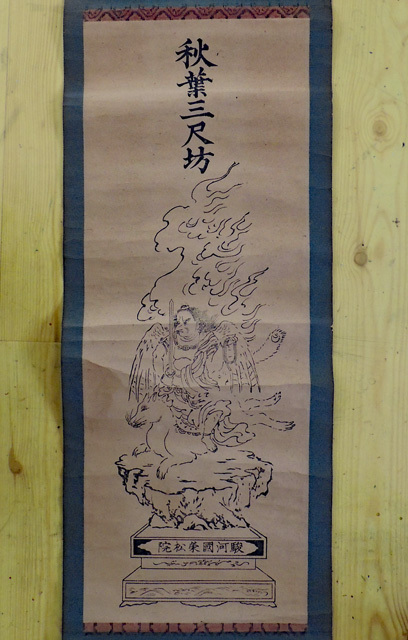 秋葉三尺坊
駿河國榮松院